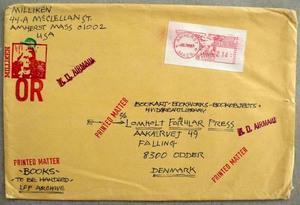 MILLIKEN
44-A MCCLELLAN ST.
AMHERST MASS 01002
USA
MILLIKEN
OR
K.D. AIRMAIL
PRINTED MATTER
BOOKART-BOOKWORKS-BOOKOBJECTS+
LOMHOLT FORMULAR PRESS
AAKAERVEJ 49
FALLING
8300 ODDER
DENMARK
K.D. AIRMAIL
PRINTED MATTER
K.D. AIRMAIL
PRINTED MATTER
PRINTED MATTER
-BOOKS-
-TO BE HANDED-
LFP ARCHIVE